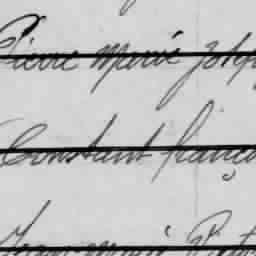 Pierre Marie Josep
Constant françо
Jean marie